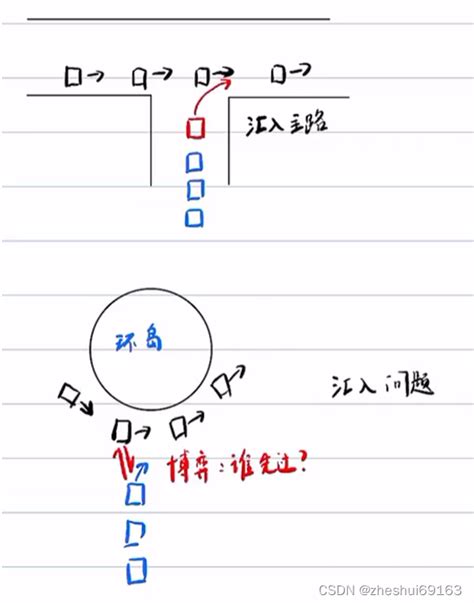 汇入主路
环岛
汇入问题
博弈:谁先过?
CSDN @zheshui69163